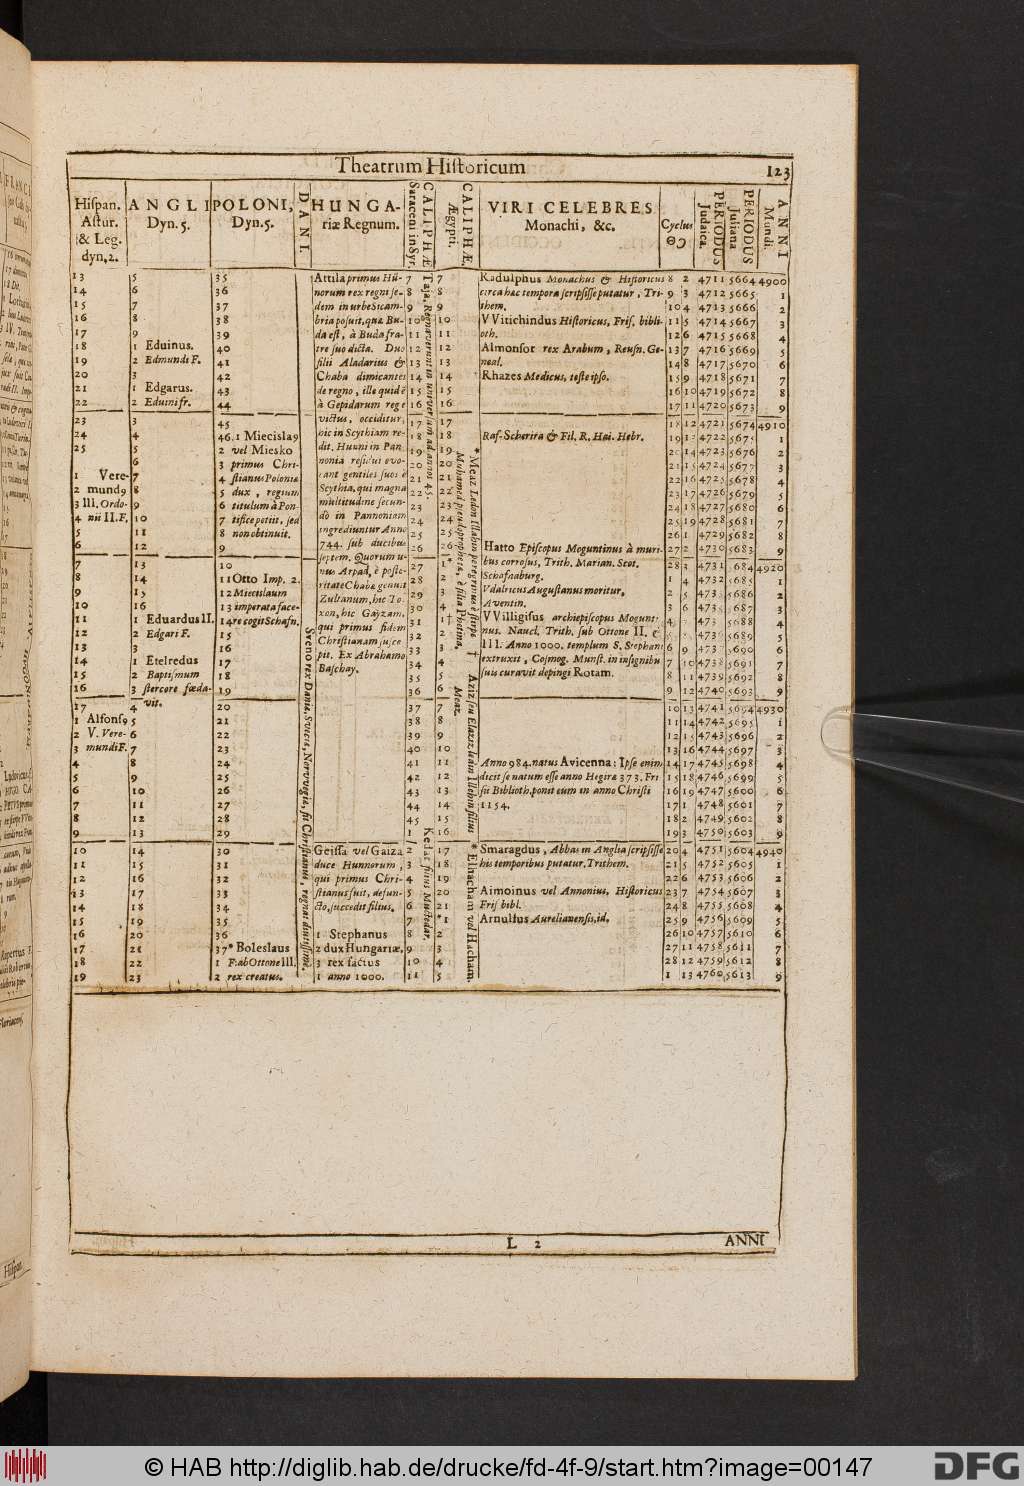 Theatrum Historicum
123
Hispan. Astur. & Leg. dyn,2.
ANGLI Dyn.5.
POLONI, Dyn.5.
DANI.
HUNGA-
riæ Regnum.
CALIPHÆ Saraceni in Syr.
CALIPHÆ Ægypti.
VIRI CELEBRES
Monachi, &c.
Cyclus
PERIODUS Judaica.
PERIODUS Juliana
ANNI Mundi.
13
14
15
16
17
18
19
20
21
22
23
24
25
1 Vere-
2 mund9
3 III. Ordo-
4 nii II.F,
5
6
7
8
9
10
11
12
13
14
15
16
17
1 Alfons9
2 V. Vere-
3 mundi F.
4
5
6
7
8
9
10
11
12
13
14
15
16
17
18
19
5
6
7
8
9
1 Eduinus.
2 Edmundi F.
3
1 Edgarus.
2 Eduini fr.
3
4
5
6
7
8
9
10
11
12
13
14
15
16
1 Eduardus II.
2 Edgari F.
3
1 Etelredus
2 Baptismum
3 stercore fœda-
4 vit.
5
6
7
8
9
10
11
12
13
14
15
16
17
18
19
20
21
22
23
35
36
37
38
39
40
41
42
43
44
45
46. 1 Miecisla9
2 vel Miesko
3 primus Chri-
4 stianus Poloniæ
5 dux, regium
6 titulum à Pon-
7 tifice petiit, sed
8 non obtinuit.
9
10
11 Otto Imp. 2.
12 Miecislaum
13 imperata face-
14 re cogit Schafn.
15
16
17
18
19
20
21
22
23
24
25
26
27
28
29
30
31
32
33
34
35
36
37 * Boleslaus
1 F. ab Ottone III.
2 rex creatus.
Sueno rex Daniæ, Sveciæ, Norvvegiæ, fit Christianus, regnat diutissimè.
Attila primus Hü-
norum rex regni se-
dem in urbe Sicam-
bria posuit, quæ Bu-
da est, à Buda fra-
tre suo dicta. Duo
filii Aladarius &
Chaba dimicantes
de regno, ille quidē
à Gepidarum rege
victus, occiditur,
hic in Scythiam re-
dit. Hunni in Pan-
nonia residui evo-
cant gentiles suos è
Scythia, qui magna
multitudine secun-
dò in Pannoniam
ingrediuntur Anno
744. sub ducibus
septem. Quorum u-
nus Arpad, è poste-
ritate Chabæ genuit
Zultanum, hic To-
xon, hic Gayzam,
qui primus fidem
Christianam susce-
pit. Ex Abrahamo
Baschay.
Geissa vel Gaiza
duce Hunnorum,
qui primus Chri-
stianus fuit, defun-
cto, succedit filius.
1 Stephanus
2 dux Hungariæ,
3 rex factus
1 anno 1000.
7
8
9
10
11
12
13
14
15
16
17
18
19
20
21
22
23
24
25
26
27
28
29
30
31
32
33
34
35
36
37
38
39
40
41
42
43
44
45
1
2
3
4
5
6
7
8
9
10
11
Taja. Regnaverunt in universum ad annos 45.
Kedar filius Mustedar.
7
8
9
10
11
12
13
14
15
16
17
18
19
20
21
22
23
24
25
26
1*
2
3
4
1
2
3
4
5
6
7
8
9
10
11
12
13
14
15
16
17
18
19
20
21
*1
2
3
4
5
* Meaz Ledin Illahin peregrinus è stirpe
Muhamed pseudoprophetæ, è filia Phatina,
Meaz.
† Aziz seu Elaziz ledin Illehin filius
* Elhacham vel Hacham.
Radulphus Monachus & Historicus
circa hæc tempora scripsisse putatur, Tri-
them.
VVitichindus Historicus, Fris. bibli-
oth.
Almonsor rex Arabum, Reusn. Ge-
neal.
Rhazes Medicus, teste ipso.
Raf-Scherira & Fil. R. Hai. Hebr.
Hatto Episcopus Moguntinus à muri-
bus corrosus, Trith. Marian. Scot.
Schafnaburg.
Vdalricus Augustanus moritur,
Aventin.
VVilligisus archiepiscopus Mogunt
nus. Naucl. Trith. sub Ottone II. &
III. Anno 1000. templum S. Stephani
extruxit, Cosmog. Munst. in insignibu
suis curavit depingi Rotam.
Anno 984. natus Avicenna: Ipse enim
dicit se natum esse anno Hegiræ 373. Fri
sii Biblioth. ponit eum in anno Christi
1154.
Smaragdus, Abbas in Anglia scripsisse
his temporibus putatur, Trithem.
Aimoinus vel Annonius, Historicus
Fris bibl.
Arnulfus Aurelianensis, id.
8 2 4711 5664 4900
9 3 4712 5665 1
10 4 4713 5666 2
11 5 4714 5667 3
12 6 4715 5668 4
13 7 4716 5669 5
14 8 4717 5670 6
15 9 4718 5671 7
16 10 4719 5672 8
17 11 4720 5673 9
18 12 4721 5674 4910
19 13 4722 5675 1
20 14 4723 5676 2
21 15 4724 5677 3
22 16 4725 5678 4
23 17 4726 5679 5
24 18 4727 5680 6
25 19 4728 5681 7
26 1 4729 5682 8
27 2 4730 5683 9
28 3 4731 684 4920
1 4 4732 5685 1
2 5 4733 5686 2
3 6 4735 5687 3
4 473 5688 4
5 4736 5689 5
6 9 473 5690 6
7 10 4738 5691 7
8 11 4739 5692 8
9 12 4740 5693 9
10 13 4741 5694 4930
11 14 4742 5695 1
12 15 4743 5696 2
13 16 4744 5697 3
14 17 4745 5698 4
15 18 4746 5699 5
16 19 4747 5600 6
17 1 4748 5601 7
18 2 4749 5602 8
19 3 4750 5603 9
20 4 4751 5604 4940
21 5 4752 5605 1
22 6 4753 5606 2
23 7 4754 5607 3
24 8 4755 5608 4
25 9 4756 5609 5
26 10 4757 5610 6
27 11 4758 5611 7
28 12 4759 5612 8
1 13 4760 5613 9
L 2
ANNI
© HAB http://diglib.hab.de/drucke/fd-4f-9/start.htm?image=00147
DFG